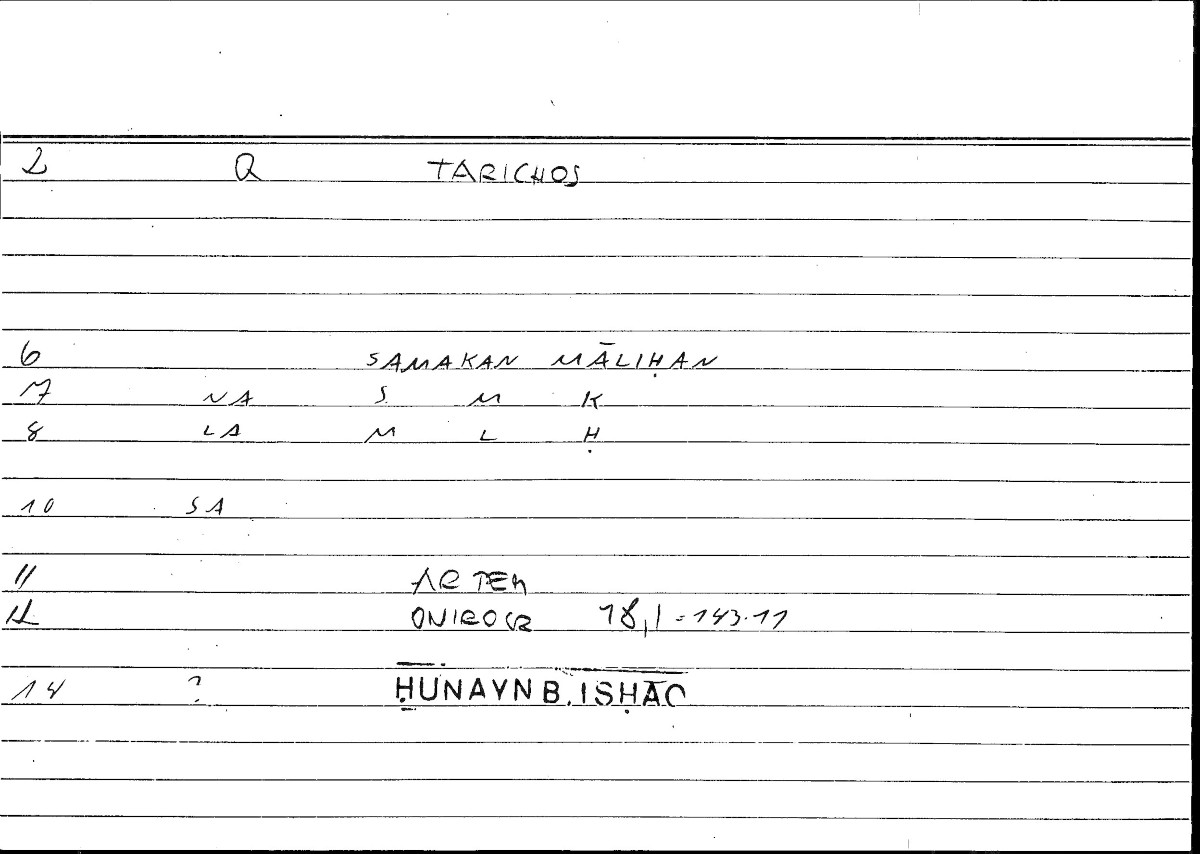 2 Q TARICHOS
6 SAMAKAN MĀLIḤAN
7 NA S M K
8 LA M L Ḥ
10 SA
11 ARTEM
12 ONIROCR 18,1 = 143.11
14 ? ḤUNAYN B. ISḤĀQ